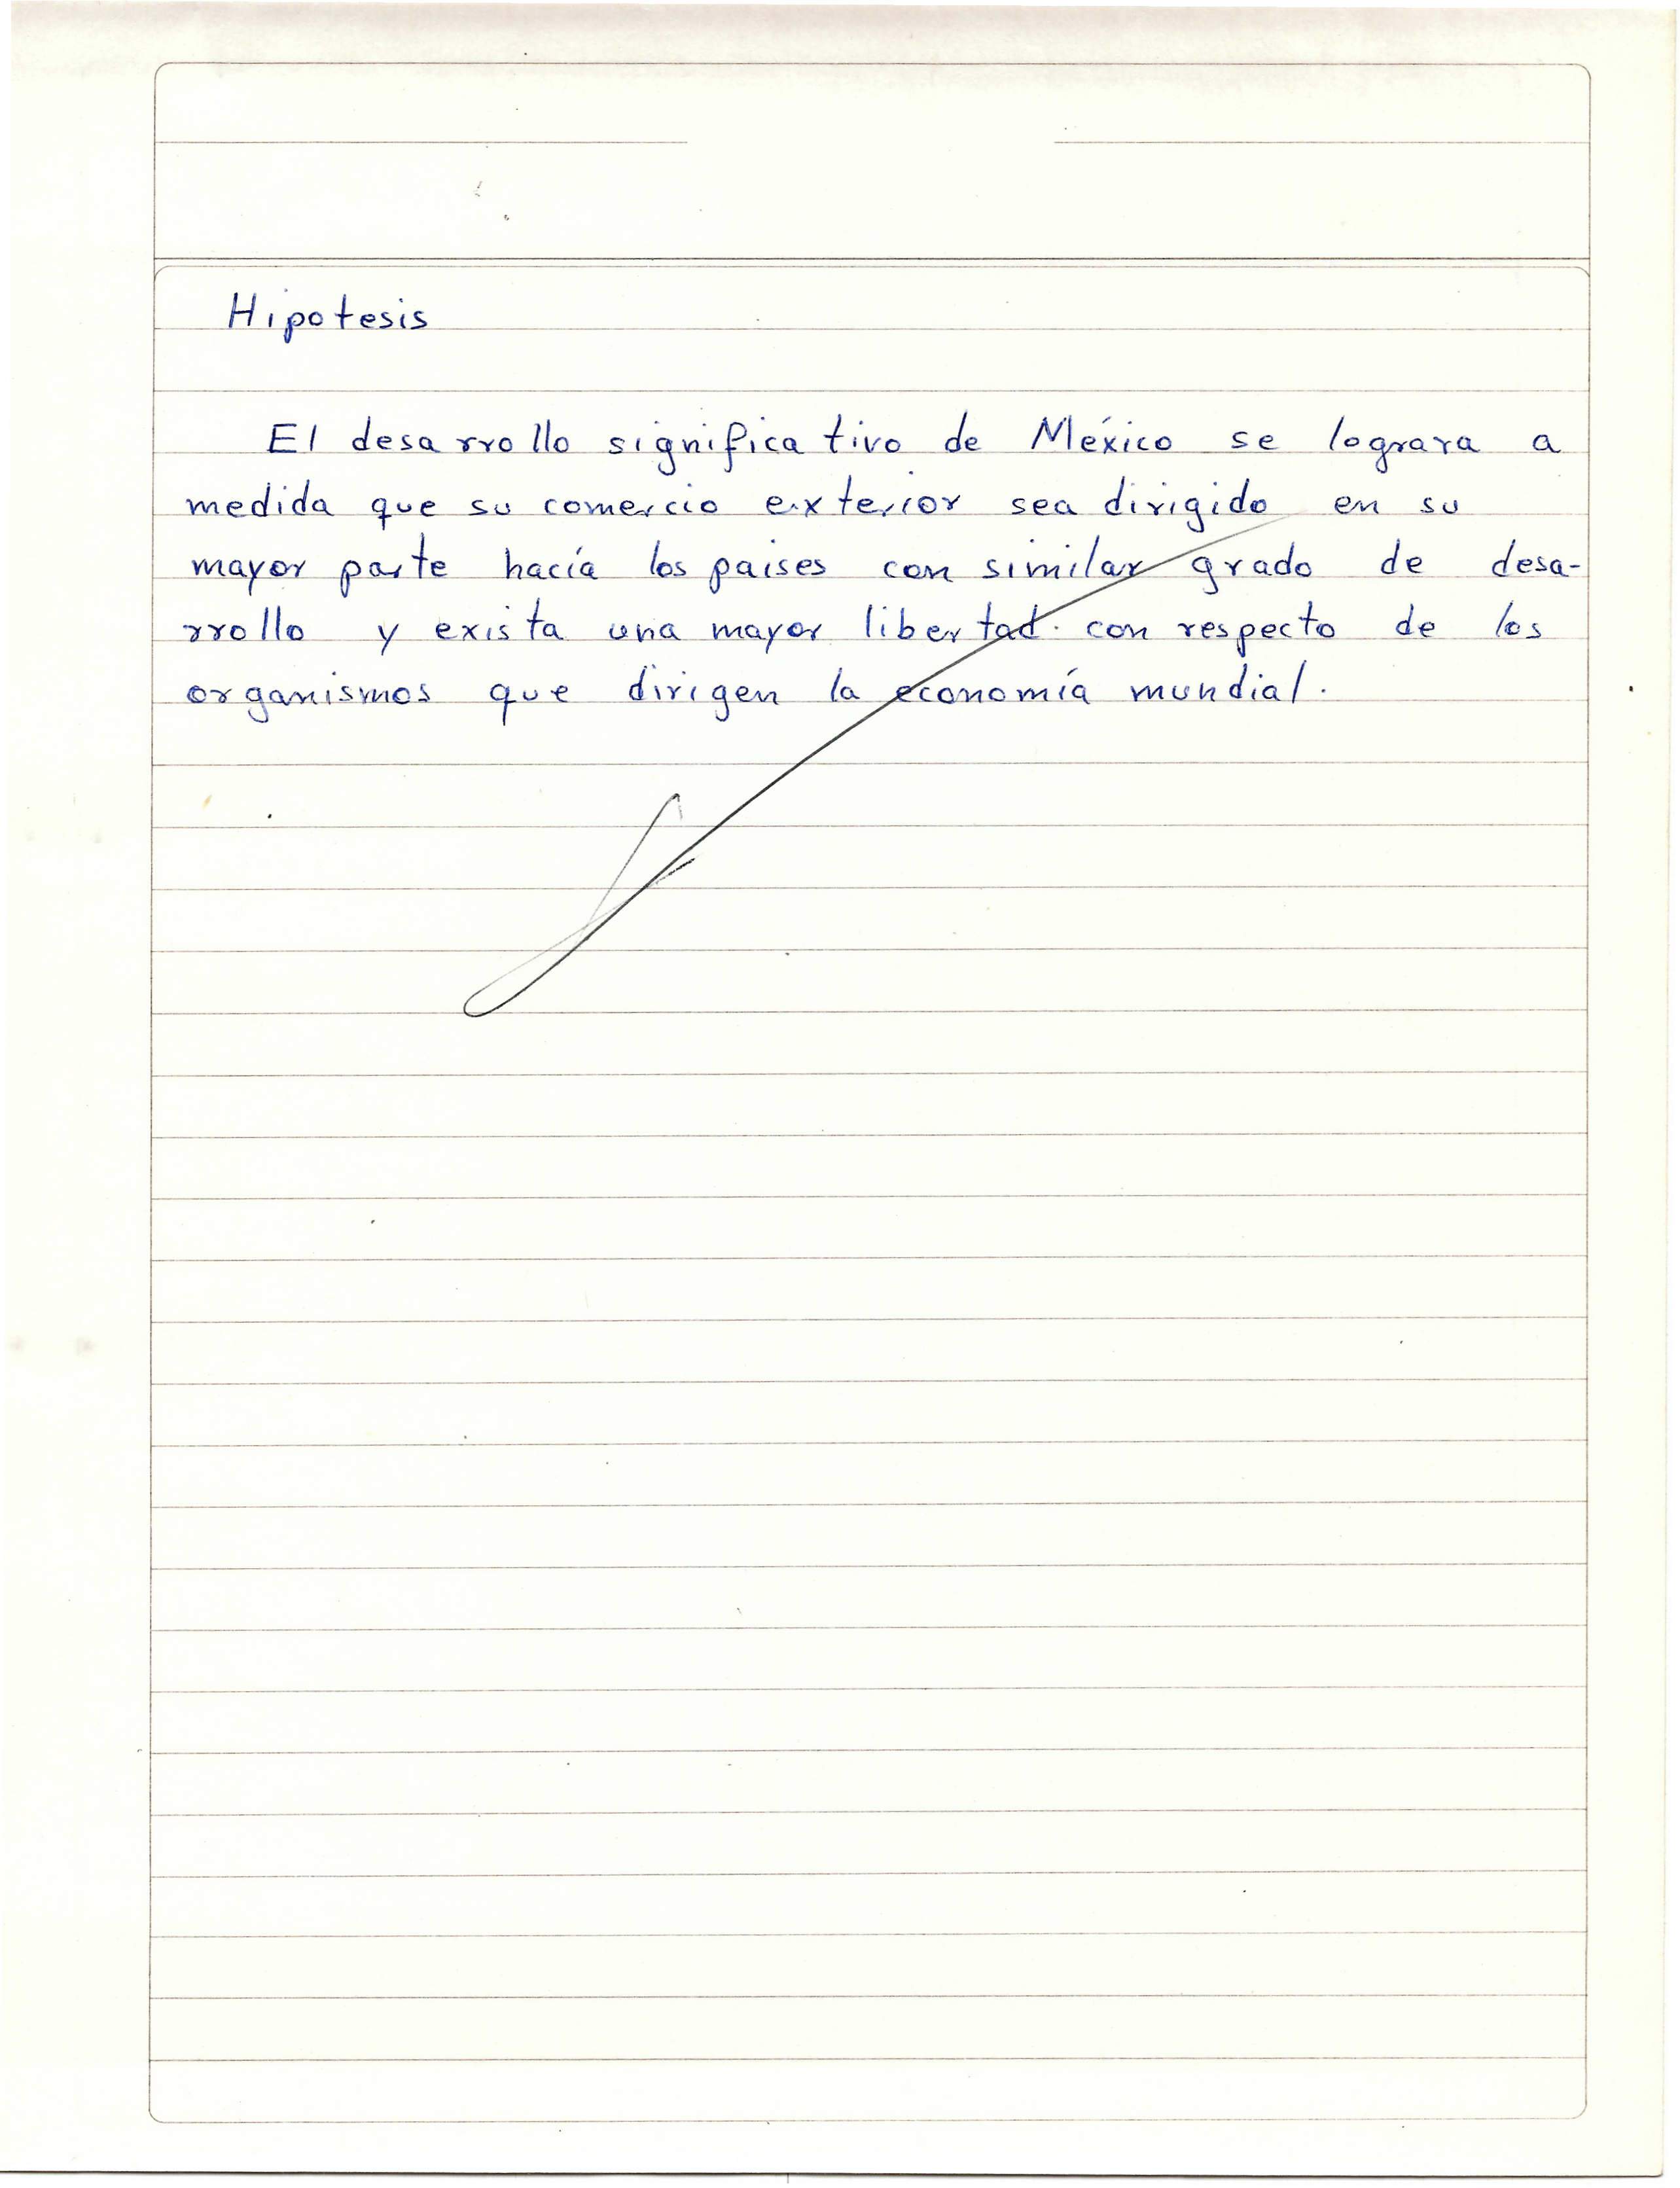 Hipotesis
El desarrollo significativo de México se lograra a
medida que su comercio exterior sea dirigido en su
mayor parte hacía los paises con similar grado de desa-
rrollo y exista una mayor libertad con respecto de los
organismos que dirigen la economía mundial.